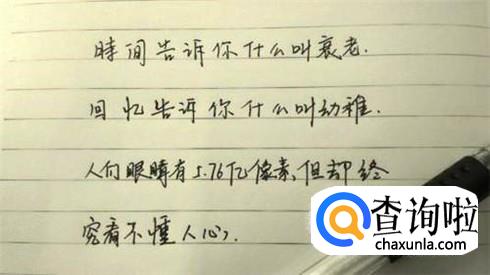 時间告诉你什么叫衰老.
回忆告诉你什么叫幼稚.
人的眼睛有5.76亿像素,但却终
究看不懂人心.
查询啦
chaxunla.com